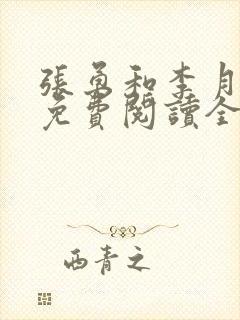 張勇和李月
免費閱讀全
西青之